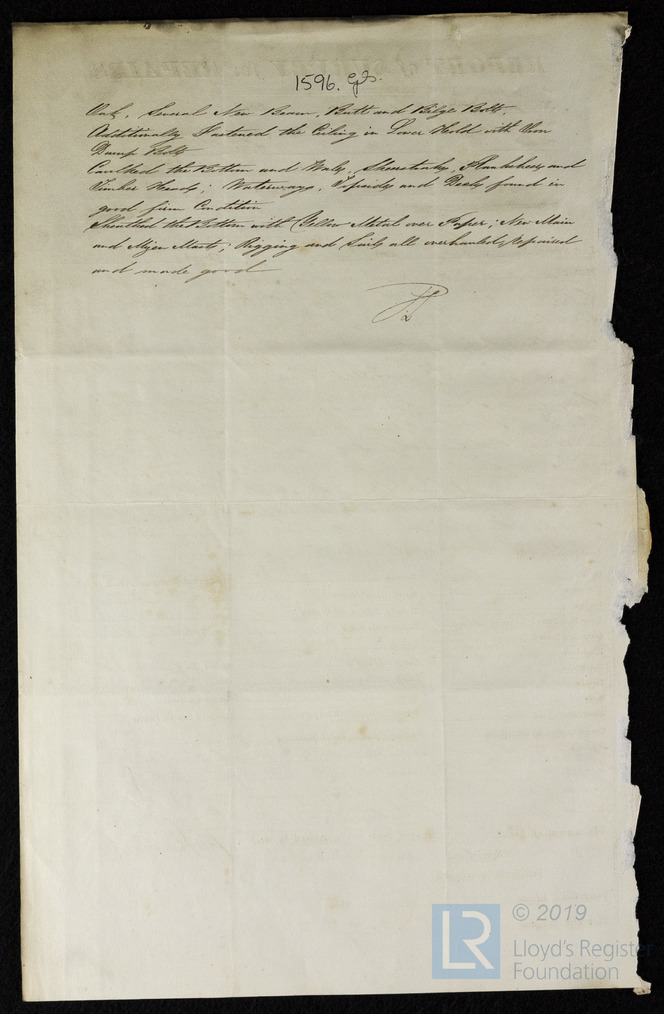 1596. Gls.
Oak, Several New Beam, Butt and Bilge Bolts,
Additionally Fastened the Ceiling in Lower Hold with Iron
Dump Bolts
Caulked the Bottom and Wales, Sheerstrakes, Planksheers and
Timber Heads; Waterways, Topsides and Decks found in
good firm Condition
Sheathed the Bottom with Yellow Metal over Paper; New Main
and Mizen Masts; Rigging and Sails all overhauled, repaired
and made good
LR
© 2019
Lloyd's Register
Foundation